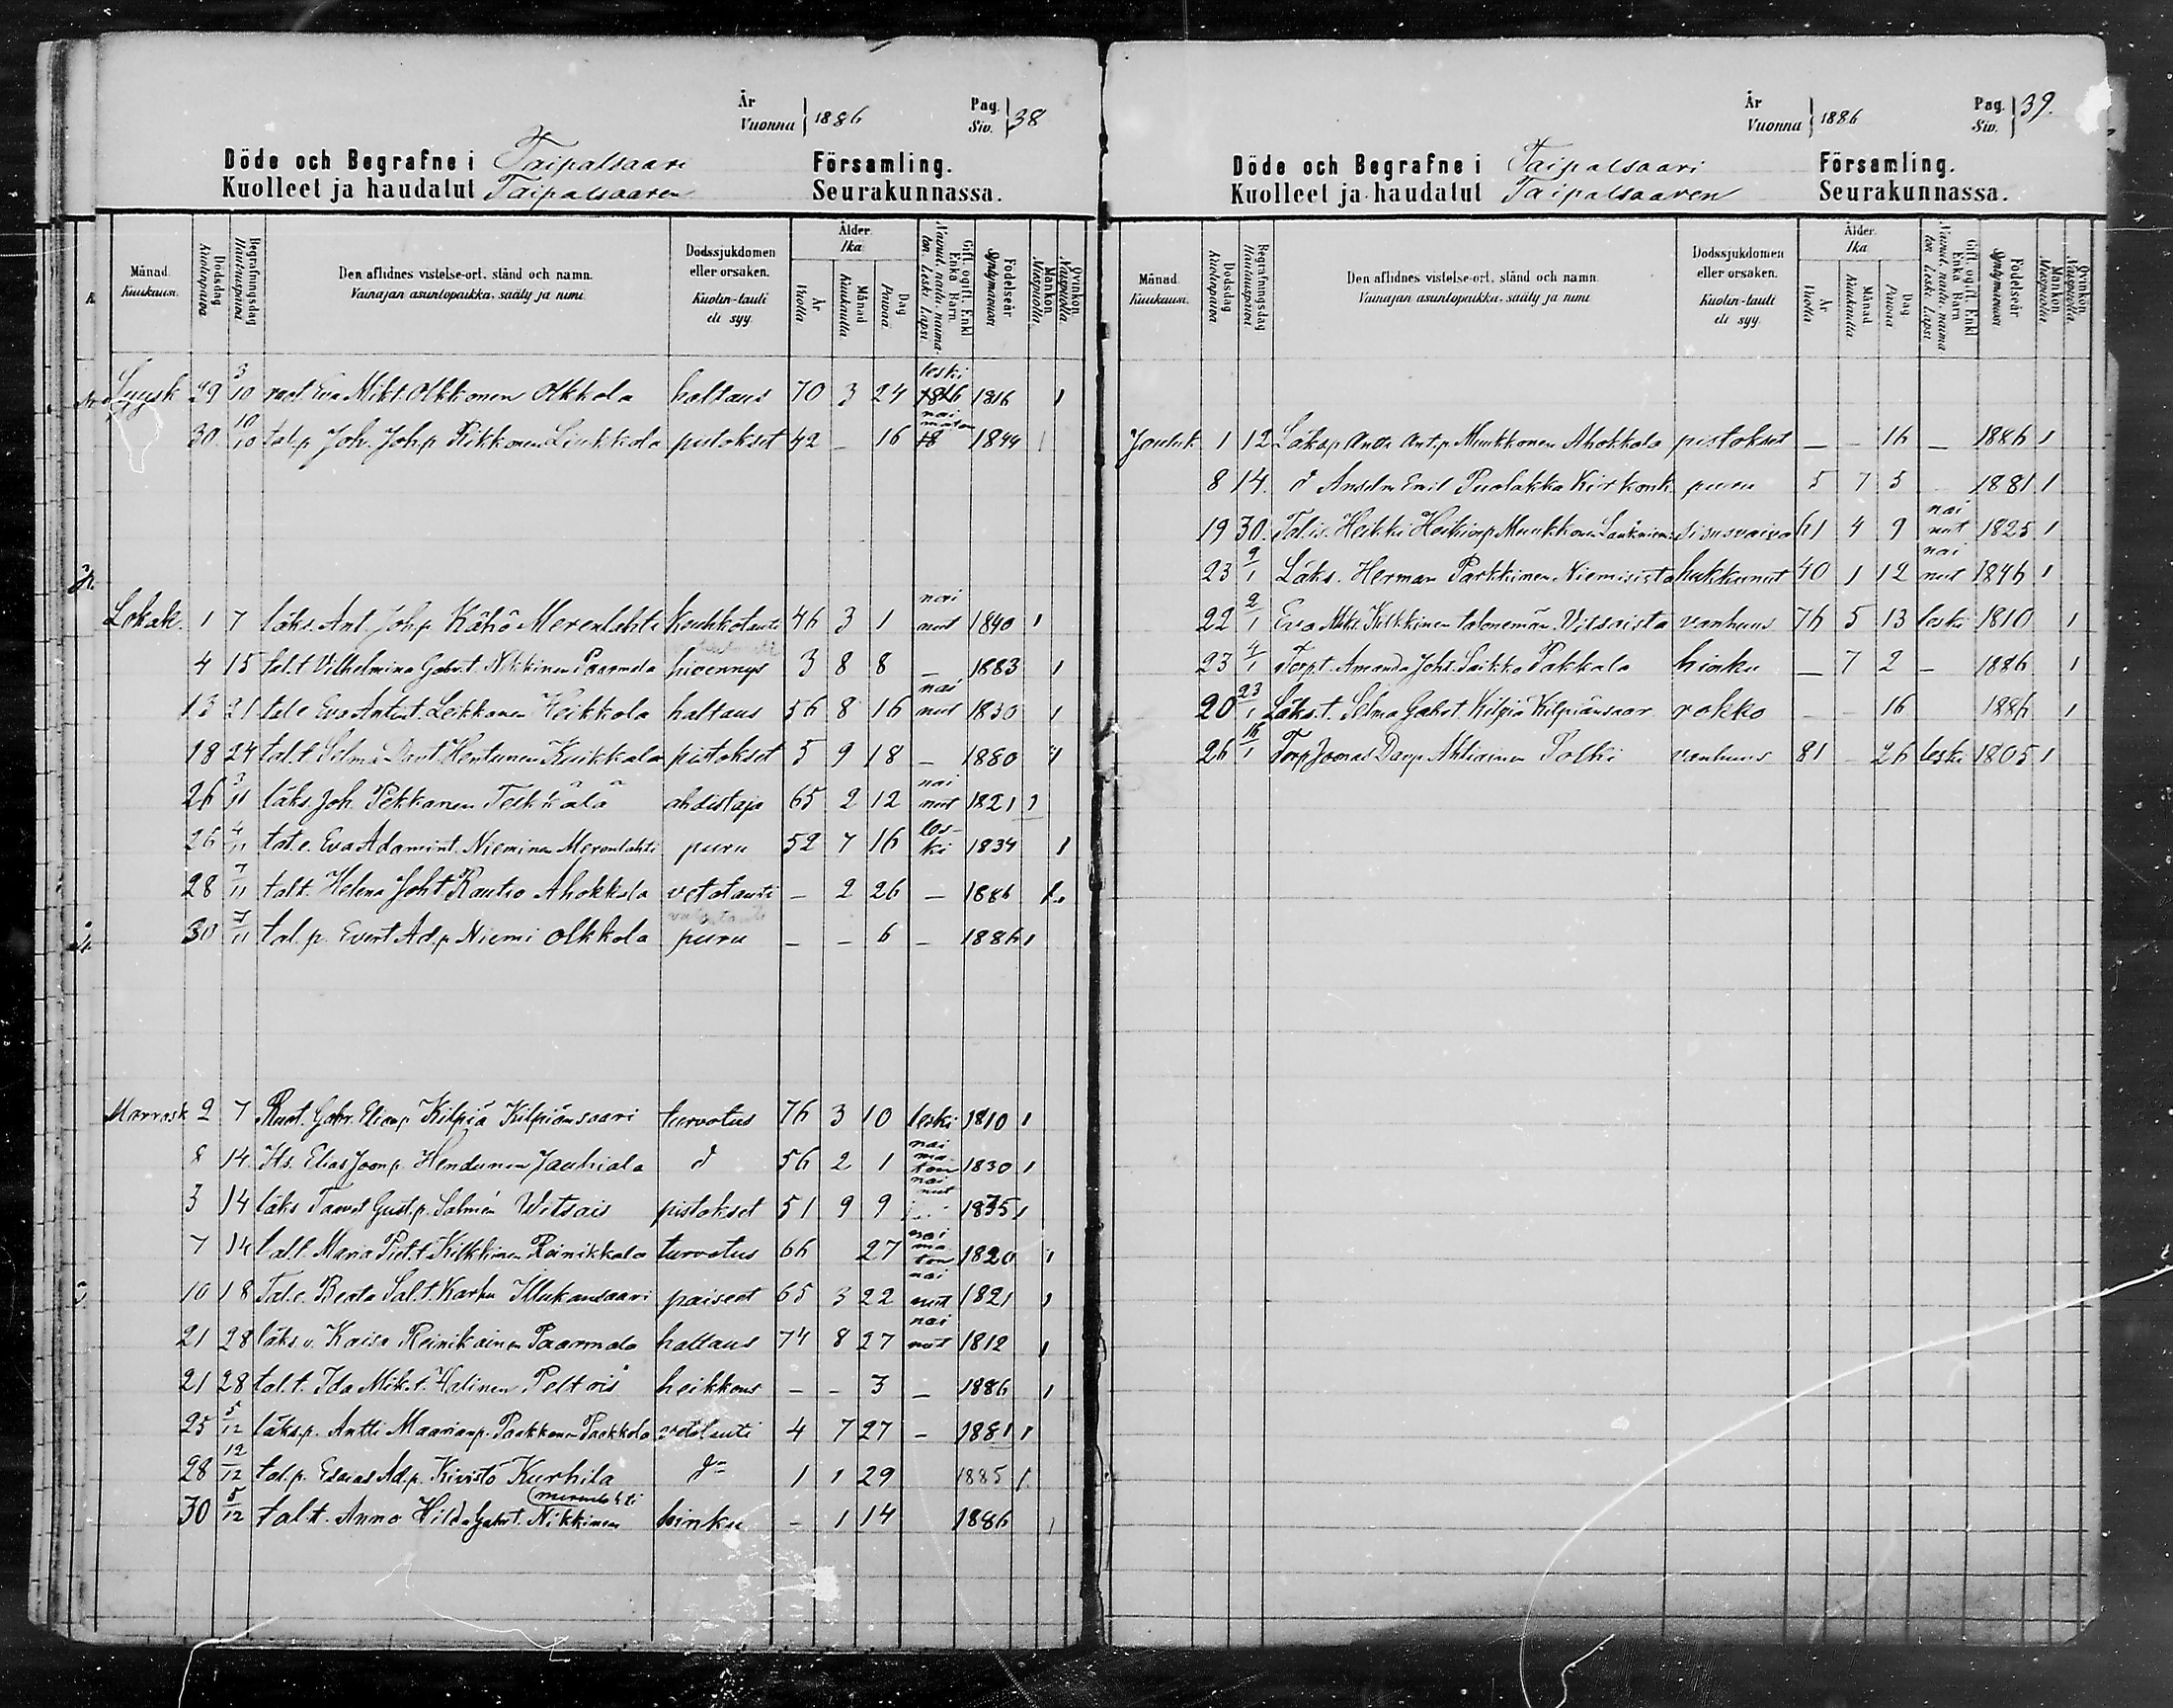 År
Vuonna } 1886
Pag.
Siv. } 38
Döde och Begrafne i Taipalsaari Församling.
Kuolleet ja haudatut Taipalsaaren Seurakunnassa.
Månad. Kuukausi.
Dödsdag Kuolinpäivä
Begrafningsdag Hautauspäivä
Den aflidnes vistelse-ort, stånd och namn.
Vainajan asuntopaikka, sääty ja nimi.
Dödssjukdomen eller orsaken.
Kuolin-tauti eli syy.
Ålder. Ikä.
År Vuotta
Månad Kuukautta
Dag Päivää
Gift, ogift, Enkl. Enka Barn
Nainut, naitu, naimaton, Leski, Lapsi.
Födelseår Syntymävuosi
Mankön Miespuolia
Qvinkön Naispuolia.
Syysk 29 3/10 ruot. Eva Mikt. Olkkonen Olkkola haltaus 70 3 24 leski 1816 1
30 10/10 tal.p. Joh. Joh.p. Rikkonen Liukkola putokset 42 – 16 naimaton 1844 1
Lokak. 1 7 läks. Ant. Joh.p. Kähö Merenlahti keuhkotauti 46 3 1 nainut 1840 1
4 15 tal.t. Vilhelmina Gabr.t. Nikkinen Paarmala hivennys 3 8 8 – 1883 1
13 21 tal.e. Eva Antint. Leikkanen Heikkola haltaus 56 8 16 nainut 1830 1
18 24 tal.t. Selma Davt. Hentunen Kuikkala pistokset 5 9 18 – 1880 1
26 3/11 läks. Joh. Pekkanen ahdistaja 65 2 12 nainut 1821 1
26 4/11 tal.e. Eva Adamint. Nieminen Merenlahti puru 52 7 16 leski 1834 1
28 7/11 tal.t. Helena Joh.t. Rautio Ahokkala vetotauti – 2 26 – 1886 1
30 7/11 tal.p. Evert Ad.p. Niemi Olkkola puru – – 6 – 1886 1
Marrask 2 7 Ruot. Gabr. Eliap. Kilpiä Kilpiänsaari turvotus 76 3 10 leski 1810 1
8 14. Its. Elias Joon.p. Hendunen Jauhiala d 56 2 1 naimaton 1830 1
3 14 läks Taavet Gust.p. Salmén Witsais pistokset 51 9 9 nainut 1835 1
7 14 tal.t. Maria Piet.t. Kilkkinen Reinikkala turvotus 66 27 naimaton 1820 1
10 18 Tal.e. Beata Sal.t. Karhu Illukansaari paiseet 65 3 22 nainut 1821 1
21 28 läks.v. Kaisa Reinikainen Paarmala haltaus 74 8 27 nainut 1812 1
21 28 tal.t. Ida Mik.t. Halinen Peltois heikkous – – 3 – 1886 1
25 5/12 läks.p. Antti Maarianp. Paakkonen Paakkola vetotauti 4 7 27 – 1881 1
28 12/12 tal.p. Esaias Ad.p. Kivistö Kurhila d:o 1 1 29 1885 1.
30 5/12 tal.t. Anna Hilda Gabr.t. Nikkinen (merenlahti hinku – 1 14 1886 1
År
Vuonna } 1886
Pag.
Siv. } 39.
Döde och Begrafne i Taipalsaari Församling.
Kuolleet ja haudatut Taipalsaaren Seurakunnassa.
Månad. Kuukausi.
Dödsdag Kuolinpäivä
Begrafningsdag Hautauspäivä
Den aflidnes vistelse-ort, stånd och namn.
Vainajan asuntopaikka, sääty ja nimi.
Dödssjukdomen eller orsaken.
Kuolin-tauti eli syy.
Ålder. Ikä.
År Vuotta
Månad Kuukautta
Dag Päivää
Gift, ogift, Enkl. Enka Barn
Nainut, naitu, naimaton, Leski, Lapsi
Födelseår Syntymävuosi.
Mankön Miespuolia
Qvinkön Naispuolia.
Jouluk 1 12 Läks.p. Anda Ant.p. Munkkonen Ahokkala pistokset – – 16 – 1886 1
8 14. d Anselm Emil Puolakka Kirkonk. puru 5 7 5 1881 1
19 30. Tal.is. Heikki Heikinp. Munkkonen 61 4 9 nainut 1825 1
23 9/1 Läks. Herman Parkkinen Niemisistä hukkunut 40 1 12 nainut 1846 1
22 2/1 Eva Mikt. Kilkkinen talonemän. Vitsaista vanhuus 76 5 13 leski 1810 1
23 4/1 Torp.t. Amanda Joht. Saikko Pakkala hinku – 7 2 – 1886 1
20 23/1 Läks.t. Selma Gabr.t. Kilpiä Kilpiänsaar rokko – – 16 1886 1
26 16/1 Torp. Joonas Davp. Ahtiainen Solki vanhuus 81 – 26 leski 1805 1